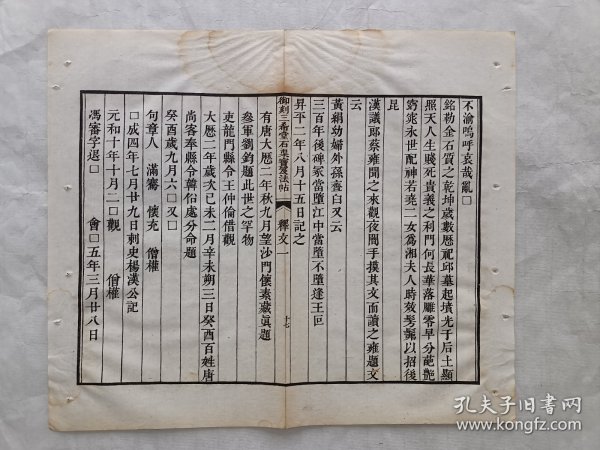 不渝嗚呼哀哉亂□
銘勒金石質之乾坤歲數歷祀邱墓起墳光于后土顯
照天人生賤死貴義之利門何長華落雕零早分葩艷
窈窕永世配神若堯二女為湘夫人時效髣髴以招後
昆
漢議郎蔡雍聞之來觀夜闇手摸其文而讀之雍題文
云
黃絹幼婦外孫虀臼又云
三百年後碑冢當墮江中當墮不墮逢王叵
昇平二年八月十五日記之
御刻三希堂石渠寶笈法帖 釋文一 十七
有唐大歷二年秋九月望沙門懷素藏真題
叅軍劉鈞題此世之罕物
吏龍門縣令王仲倫借觀
大歷二年歲次己未二月辛未朔三日癸酉百姓唐
尚客奉縣令韓俗處分命題
癸酉歲九月六□又□
句章人 滿騫 懷充 僧權
□成四年七月廿九日刺史楊漢公記
元和十年十月二□觀 僧權
馮審字退□ 會□五年三月廿八日
孔夫子旧书网
www.kongfz.com